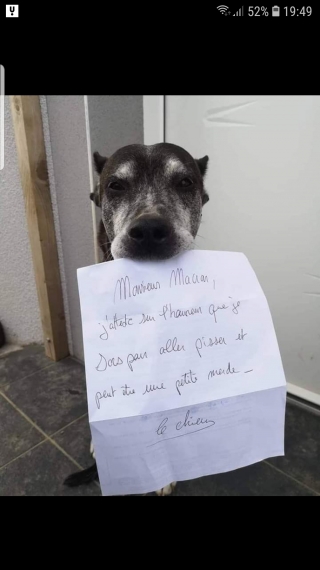 52% 19:49
Monsieur Macron,
j'atteste sur l'honneur que je
sors pour aller pisser et
peut être une petite merde_
le chien